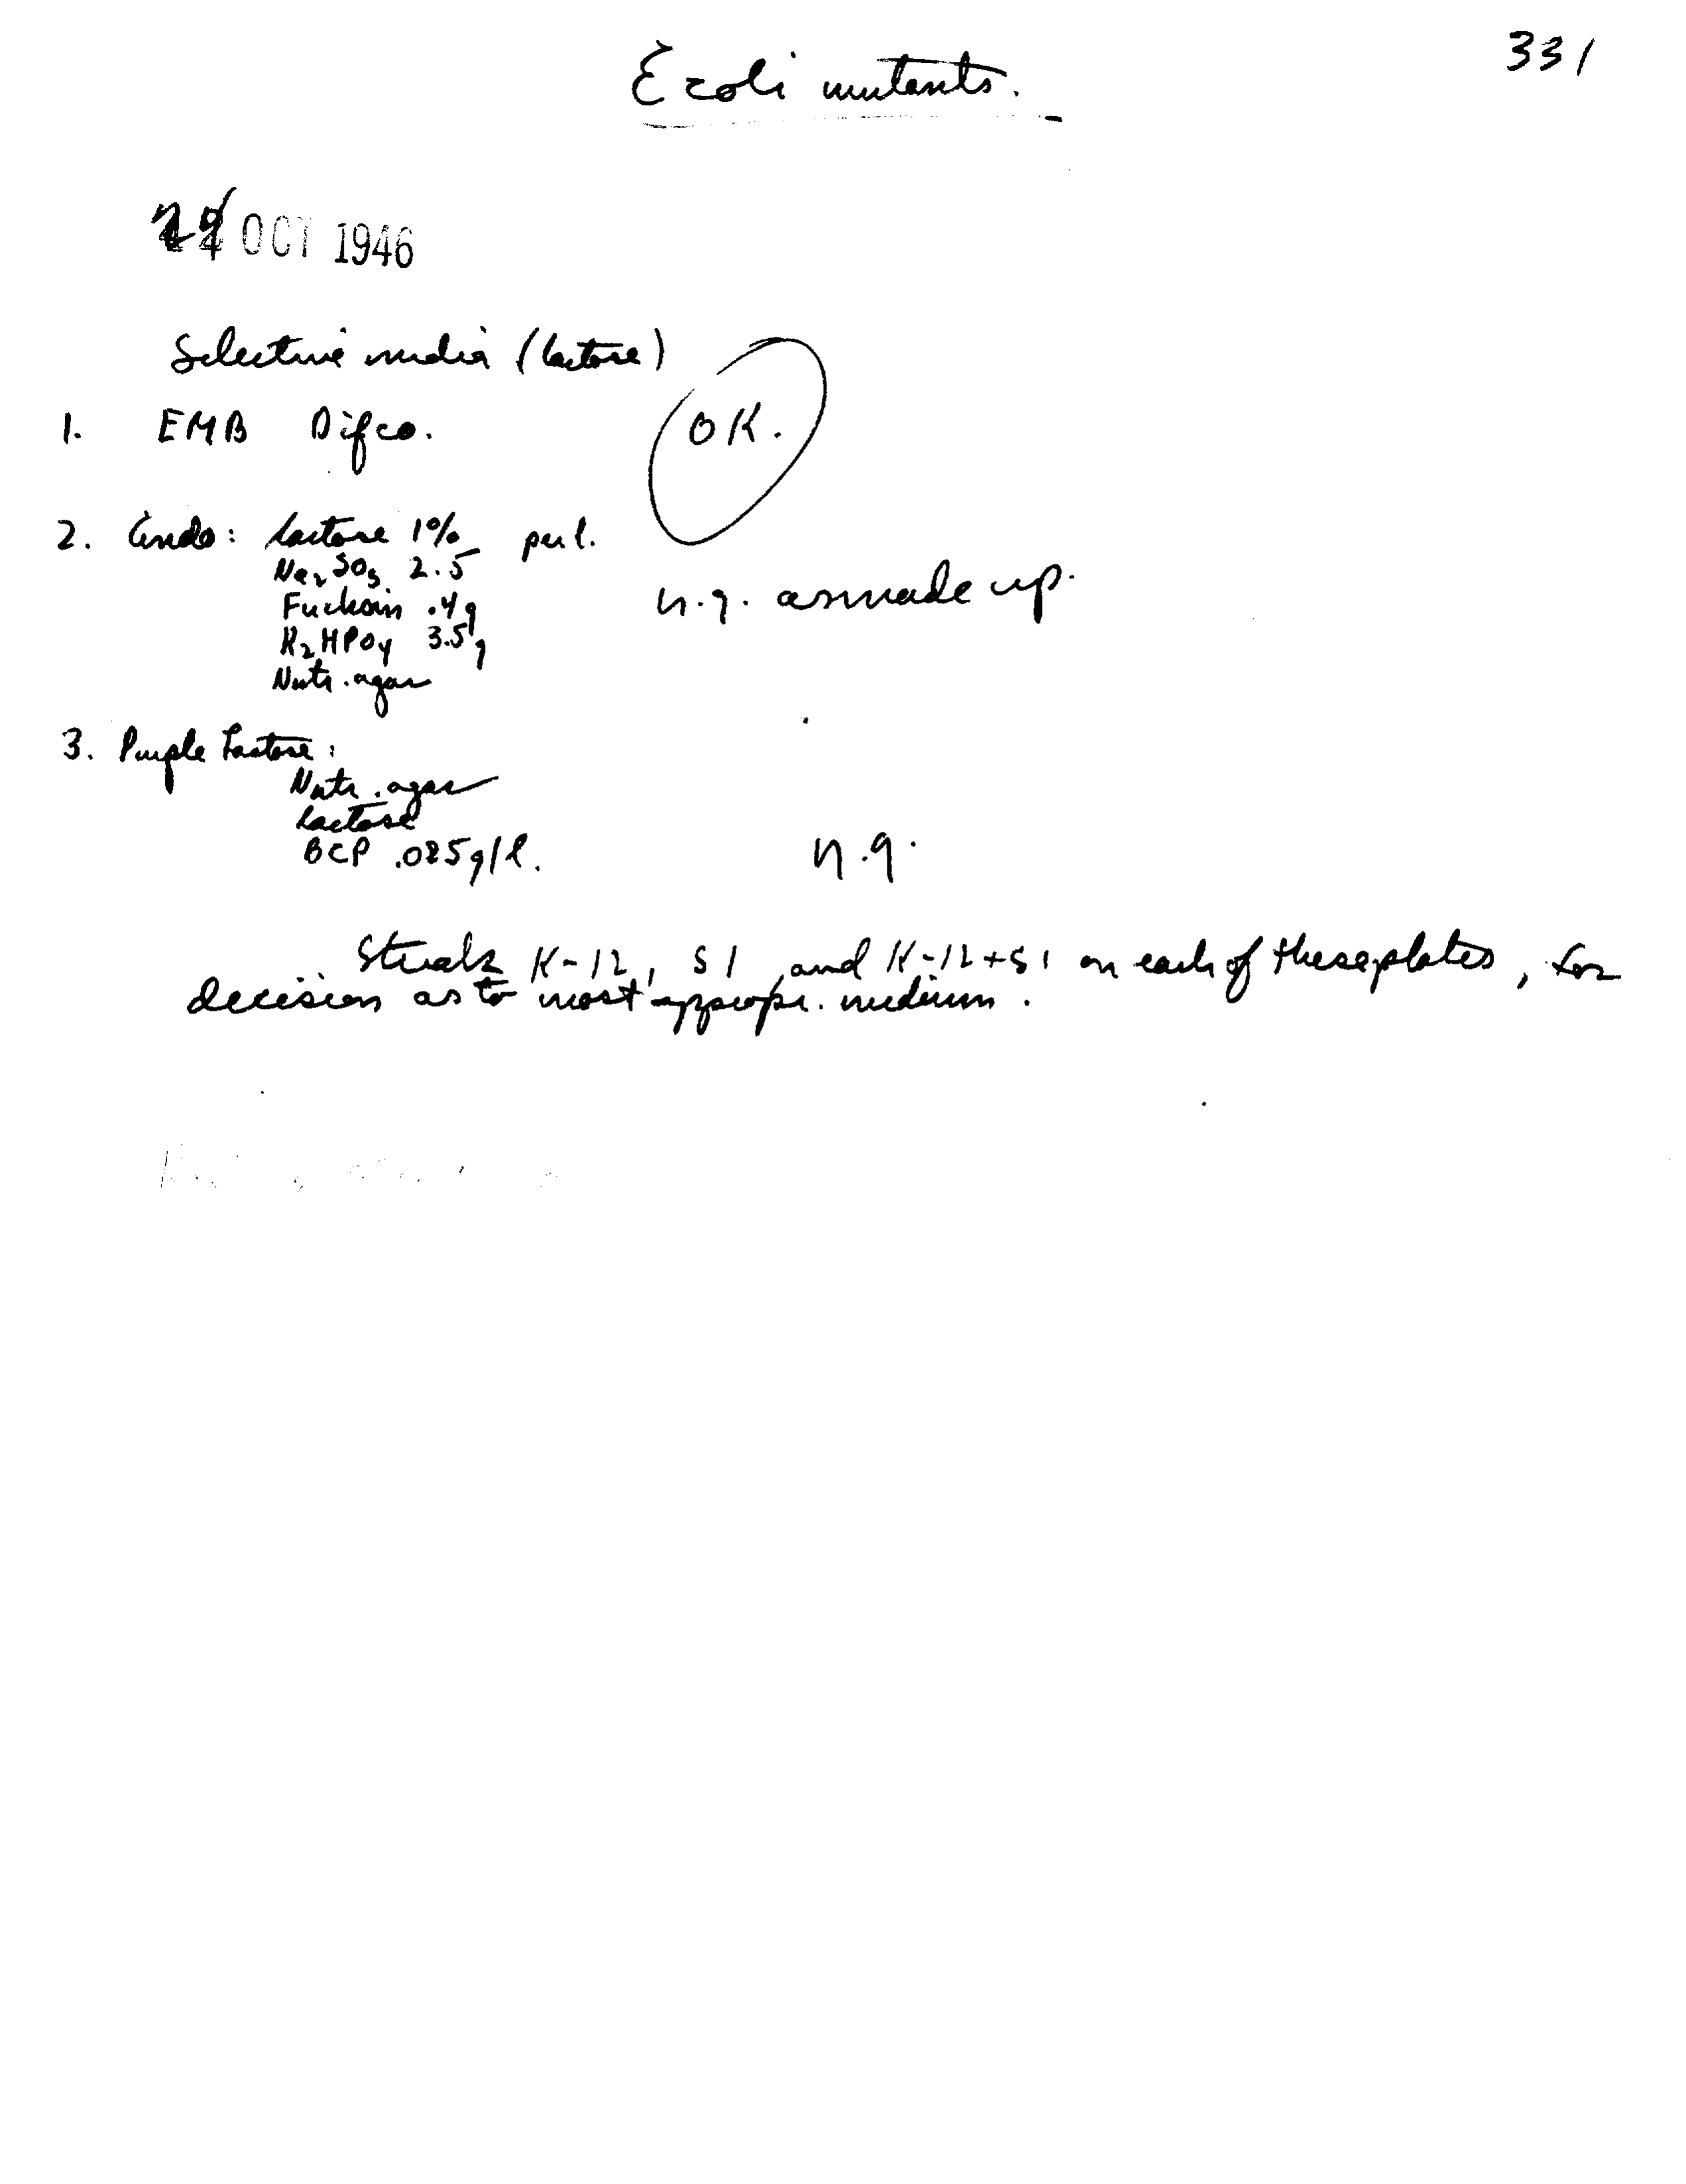 331
E coli mutants.
OCT 1946
Selective media (lactose)
1. EMB Difco. OK.
2. Endo: lactose 1% per l.
Na₂SO₃ 2.5
Fuchsin .4g n.g. as made up.
K₂HPO₄ 3.5g
Nutr. agar
3. Purple Lactose:
Nutr. agar
lactose
BCP .025g/l. n.g.
Streak K-12, S1, and K-12+S1 on each of these plates, for
decision as to most appropr. medium.